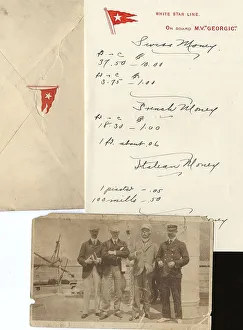 WHITE STAR LINE.
ON BOARD M.V. "GEORGIC".
Swiss Money
37.50 - 10.00
3.75 - 1.00
French Money
18.30 - 1.00
1 ft. about 06
Italian Money
1 piaster - .05
100 mills - .50